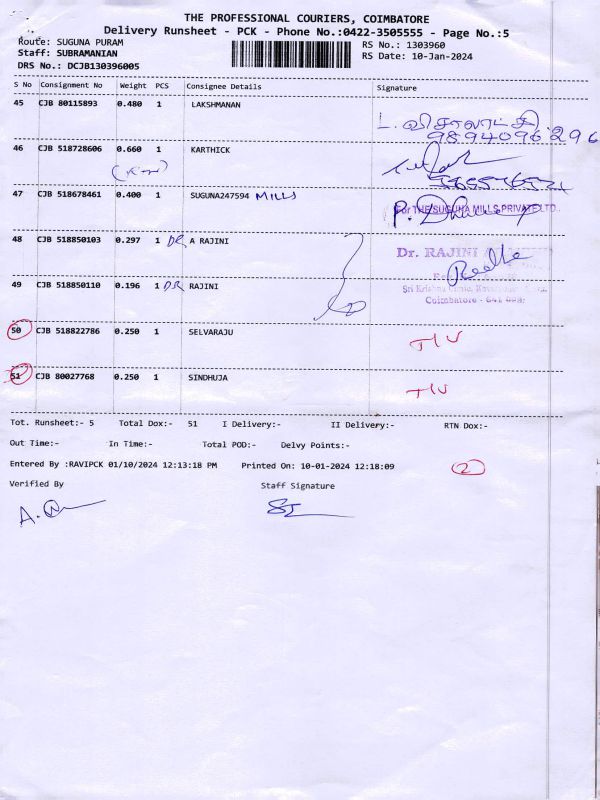 THE PROFESSIONAL COURIERS, COIMBATORE
Delivery Runsheet - PCK - Phone No.:0422-3505555 - Page No.:5
Route: SUGUNA PURAM
RS No.: 1303960
Staff: SUBRAMANIAN
RS Date: 10-Jan-2024
DRS No.: DCJB130396005
S No Consignment No Weight PCS Consignee Details Signature
45 CJB 80115893 0.480 1 LAKSHMANAN
L. விசாலாட்சி
9894096296
46 CJB 518728606 0.660 1 KARTHICK
47 CJB 518678461 0.400 1 SUGUNA247594 MILLS
For THE SUGUNA MILLS PRIVATE LTD.,
48 CJB 518850103 0.297 1 DR A RAJINI
Dr. RAJINI
49 CJB 518850110 0.196 1 DR RAJINI
Sri Krishna
Coimbatore - 641
50 CJB 518822786 0.250 1 SELVARAJU
51 CJB 80027768 0.250 1 SINDHUJA
Tot. Runsheet:- 5 Total Dox:- 51 I Delivery:- II Delivery:- RTN Dox:-
Out Time:- In Time:- Total POD:- Delvy Points:-
Entered By :RAVIPCK 01/10/2024 12:13:18 PM Printed On: 10-01-2024 12:18:09 2
Verified By Staff Signature